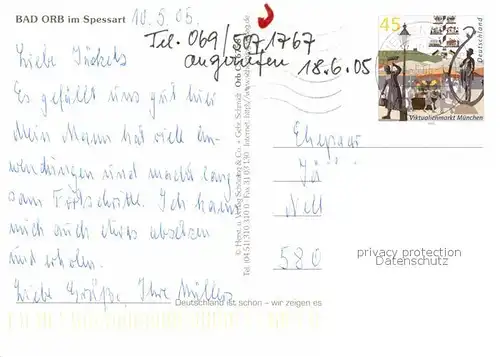 BAD ORB im Spessart 10.5.05.
Tel. 069/507 1767
angerufen 18.6.05
Liebe Jäckels
Es gefällt uns gut hier
Mein Mann hat viel An-
wendungen und macht lang
sam Fortschritte. Ich kann
mich auch etwas absetzen
und erholen.
Liebe Grüße, Ihre Müller
45
Deutschland
Viktualienmarkt München
Ehepaar
Jä
Nell
580
privacy protection
Datenschutz
Deutschland ist schön – wir zeigen es